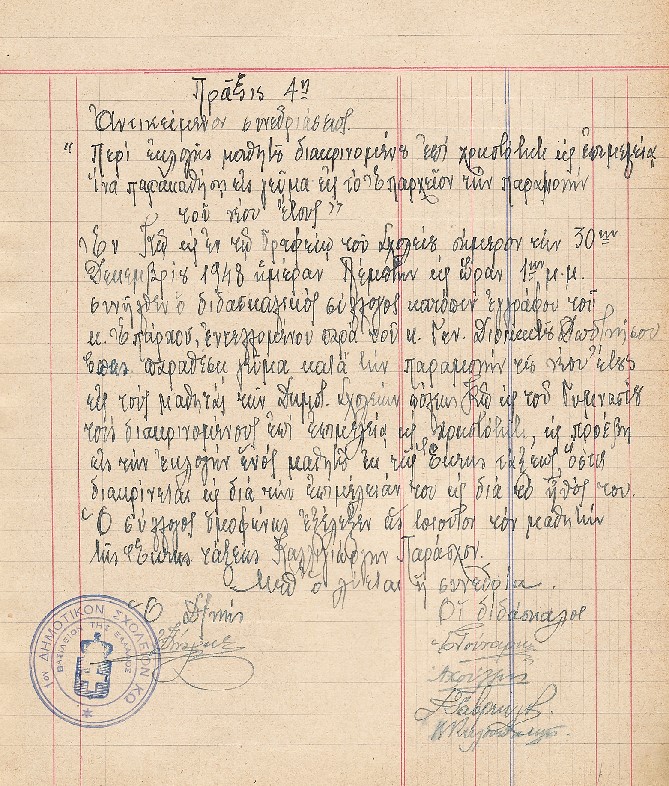 Πρᾶξις 4η
Ἀντικείμενον συνεδριάσεως.
"Περί ἐκλογῆς μαθητοῦ διακρινομένου ἐπί χρηστότητι καί ἐπιμελείᾳ
ἵνα παρακαθήσῃ εἰς γεῦμα εἰς τό Ἐπαρχεῖον τήν παραμονήν
τοῦ νέου ἔτους"
Ἐν Κῷ καί ἐν τῷ Γραφείῳ τοῦ Σχολείου σήμερον τήν 30ην
Δεκεμβρίου 1948 ἡμέραν Πέμπτην καί ὥραν 1ην μ.μ.
συνῆλθεν ὁ διδασκαλικός σύλλογος κατόπιν ἐγγράφου τοῦ
κ. Ἐπάρχου, ἐντελλομένου παρά τοῦ κ. Γεν. Διοικητοῦ Δωδ/νήσου
ὅπως παραθέσῃ γεῦμα κατά τήν παραμονήν τοῦ νέου ἔτους
εἰς τούς μαθητάς τῶν Δημοτ. Σχολείων πόλεως Κῶ καί τοῦ Γυμνασίου
τούς διακρινομένους ἐπί ἐπιμελείᾳ καί χρηστότητι, καί προέβη
εἰς τήν ἐκλογήν ἑνός μαθητοῦ ἐκ τῆς Ἕκτης τάξεως, ὅστις
διακρίνεται καί διά τήν ἐπιμέλειάν του καί διά τό ἦθος του.
Ὁ σύλλογος ὁμοφώνως ἐξέλεξεν ὡς τοιοῦτον τόν μαθητήν
τῆς Ἕκτης τάξεως Παράσχον.
Μεθ' ὅ λύεται ἡ συνεδρία.
Ὁ Δ/ντής
Οἱ διδάσκαλοι
1ον ΔΗΜΟΤΙΚΟΝ ΣΧΟΛΕΙΟΝ ΚΩ
ΒΑΣΙΛΕΙΟΝ ΤΗΣ ΕΛΛΑΔΟΣ